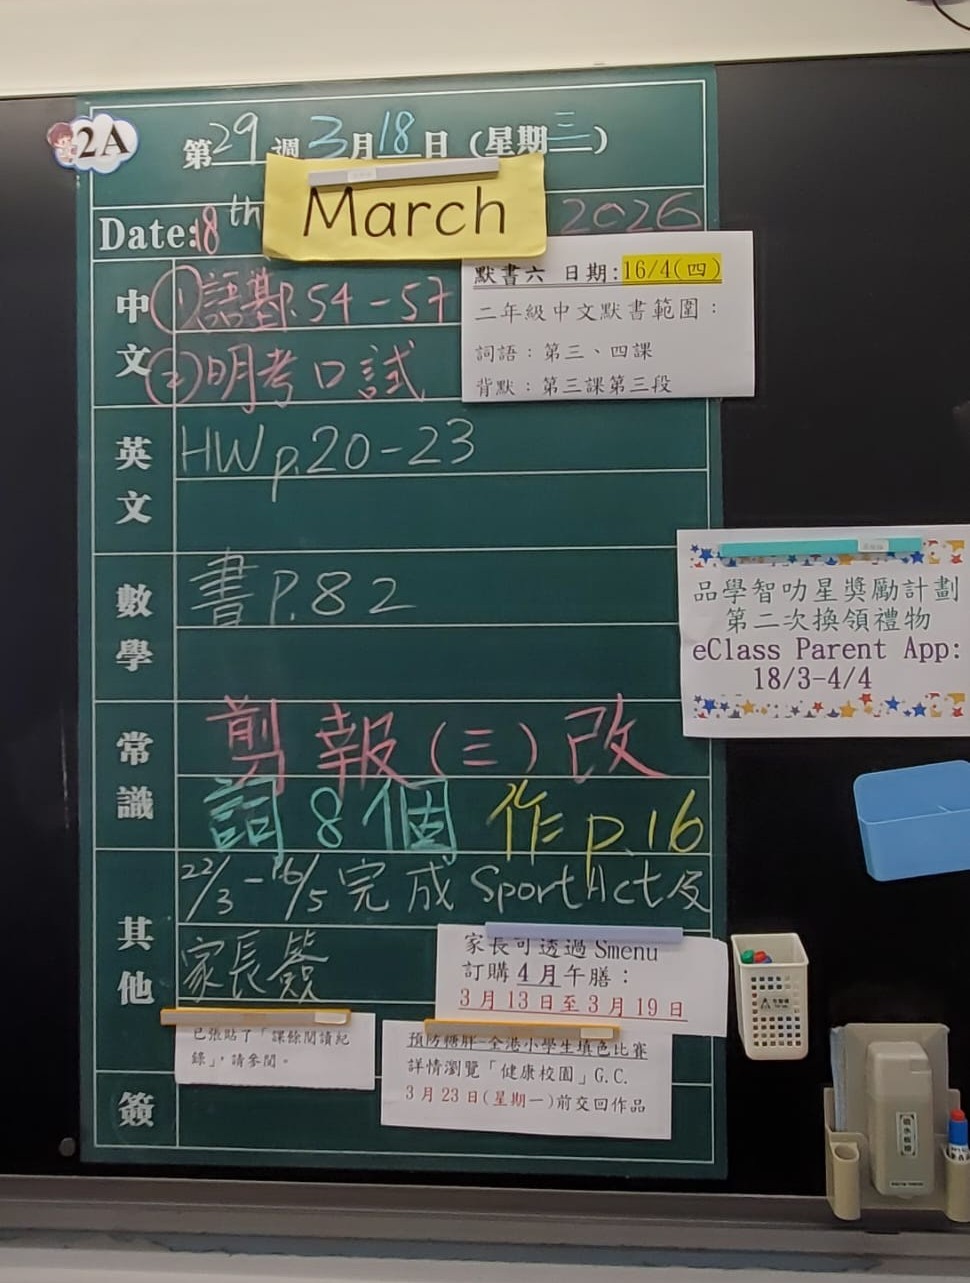 2A
第29週 3月18日 (星期三)
Date: 18th March 2026
中文
(1)語基P.54-57
(2)明考口試
默書六 日期:16/4(四)
二年級中文默書範圍：
詞語：第三、四課
背默：第三課第三段
英文
HW p.20-23
數學
書P.82
品學智叻星獎勵計劃
第二次換領禮物
eClass Parent App:
18/3-4/4
常識
剪報(三)改
詞8個 作p.16
其他
22/3-16/5完成SportAct及
家長簽
家長可透過Smenu
訂購4月午膳：
3月13日至3月19日
已張貼了「課餘閱讀紀
錄」，請參閱。
預防糖胖-全港小學生填色比賽
詳情瀏覽「健康校園」G.C.
3月23日(星期一)前交回作品
簽